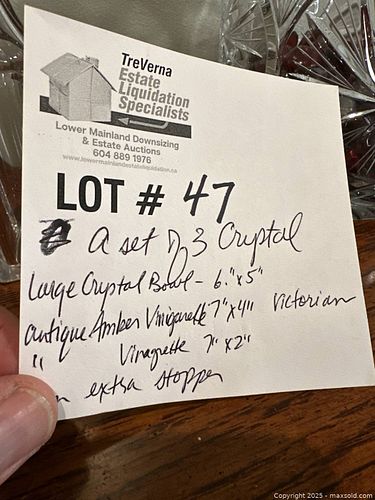 TreVerna
Estate
Liquidation
Specialists
Lower Mainland Downsizing
& Estate Auctions
604 889 1976
www.lowermainlandestateliquidation.ca
LOT # 47
A set of 3 Crystal
Large Crystal Bowl - 6." x 5"
antique Amber Vinigarette 7" x 4" Victorian
" Vinagrette 7" x 2"
extra stopper
Copyright 2025 - maxsold.com